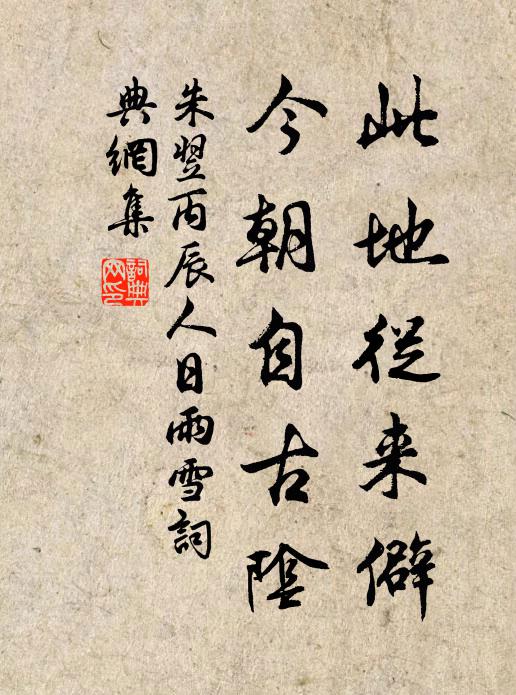 此地從来僻
今朝自古陰
朱翌丙辰人日雨雪詞
典網集
詞典
网印